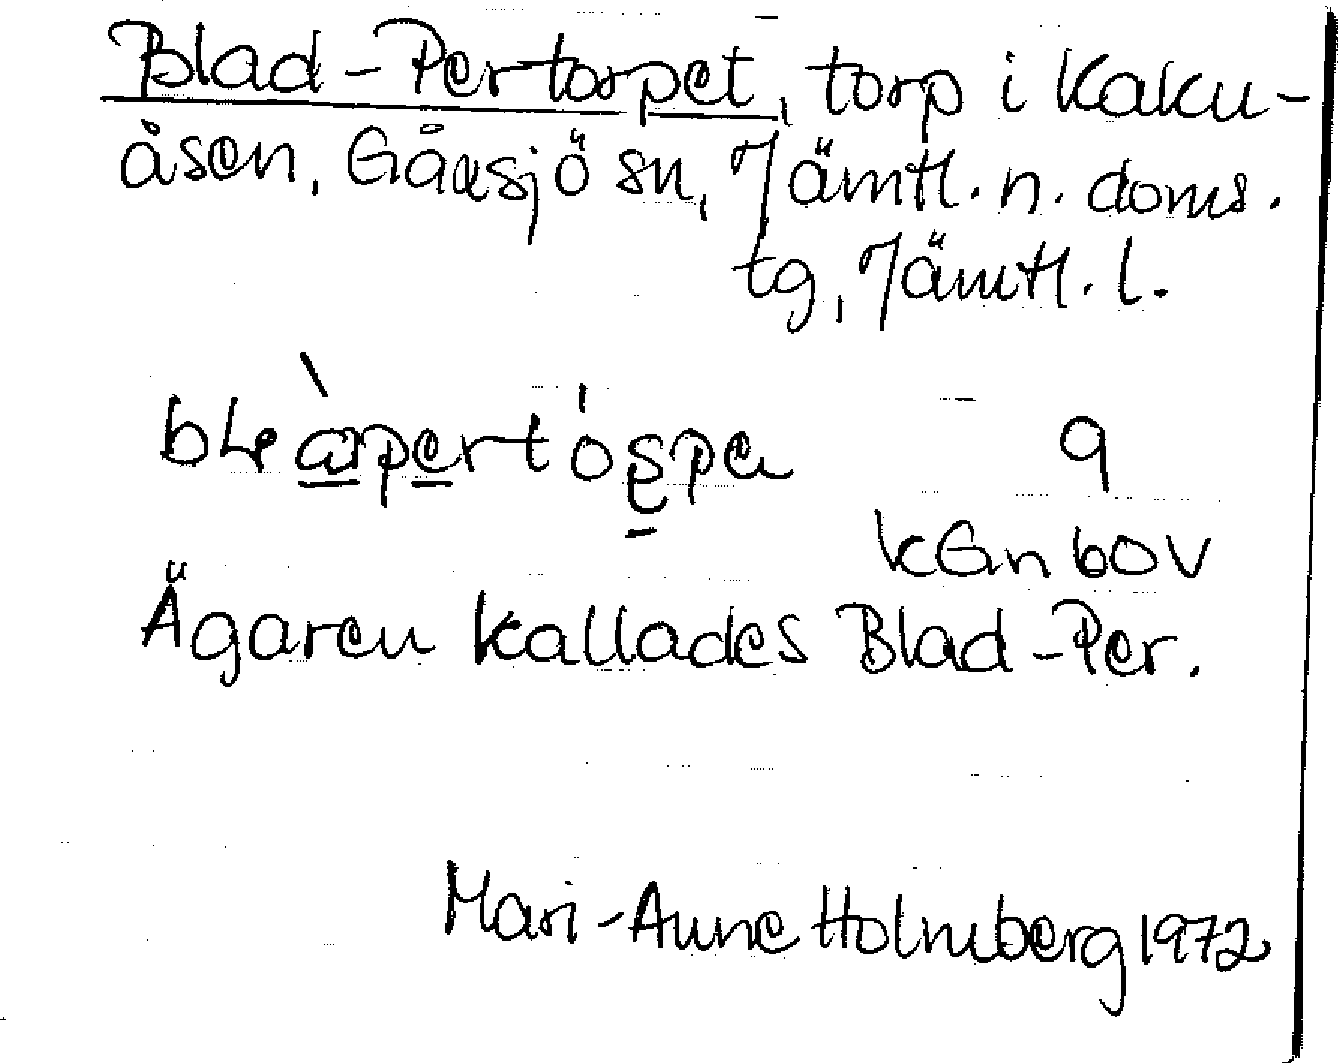 Blad-Pertorpet, torp i Kaku-
åsen, Gåxsjö sn, Jämtl. n. doms.
tg, Jämtl. l.
9
kGn bov
Ägaren kallades Blad-Per.
Mari-Anne Holmberg 1972